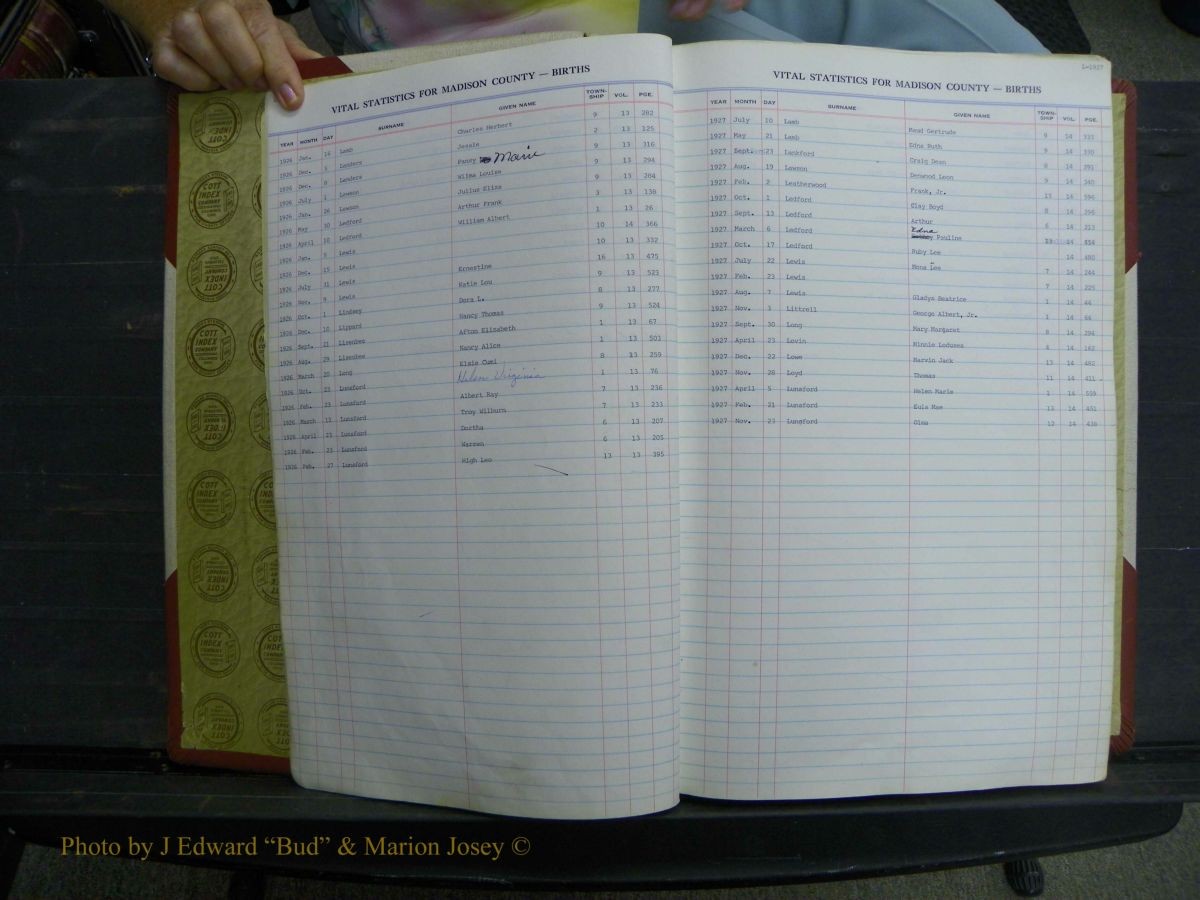 VITAL STATISTICS FOR MADISON COUNTY — BIRTHS
YEAR MONTH DAY SURNAME GIVEN NAME TOWN-SHIP VOL. PGE.
1926 Jan. 14 Lamb Charles Herbert 9 13 282
1926 Dec. Landers Jessie 2 13 125
1926 Dec. Landers Pansy Marie 9 13 316
1926 July Lawson Wilma Louise 9 13 294
1926 Jan. 26 Lawson Julius Eliza 9 13 284
1926 May 30 Ledford Arthur Frank 3 13 130
1926 April 18 Ledford William Albert 1 13 26
1926 Jan. Lewis 10 14 366
1926 Dec. 15 Lewis 10 13 332
1926 July 31 Lewis Ernestine 16 13 475
1926 Nov. 9 Lewis Katie Lou 9 13 523
1926 Oct. 1 Lindsey Dora L. 8 13 277
1926 Dec. 10 Lippard Nancy Thomas 9 13 524
1926 Sept. 21 Lisenbee Afton Elizabeth 1 13 67
1926 Aug. 29 Lisenbee Nancy Alice 1 13 501
1926 March 20 Long Elsie Cumi 8 13 259
1926 Oct. 23 Lunsford Helen Virginia 1 13 76
1926 Feb. 23 Lunsford Albert Ray 7 13 236
1926 March 13 Lunsford Troy Wilburn 7 13 233
1926 April 23 Lunsford Dortha 6 13 207
1926 Feb. 23 Lunsford Warren 6 13 205
1926 Feb. 27 Lunsford High Leo 13 13 395
L-1927
VITAL STATISTICS FOR MADISON COUNTY — BIRTHS
YEAR MONTH DAY SURNAME GIVEN NAME TOWN-SHIP VOL. PGE.
1927 July 10 Lamb Gertrude 9 14 333
1927 May 21 Lamb Edna Ruth 9 14 330
1927 Sept. 23 Lankford Craig Dean 9 14 391
1927 Aug. 19 Lawson Denwood Leon 9 14 340
1927 Feb. 2 Leatherwood Frank, Jr. 15 14 596
1927 Oct. 1 Ledford Clay Boyd 8 14 295
1927 Sept. 13 Ledford Arthur 6 14 213
1927 March 6 Ledford Edna Pauline 13 14 454
1927 Oct. 17 Ledford Ruby Lee 14 480
1927 July 22 Lewis Mona Lee 7 14 244
1927 Feb. 23 Lewis 7 14 225
1927 Aug. 7 Lewis Gladys Beatrice 1 14 44
1927 Nov. 3 Littrell George Albert, Jr. 1 14 66
1927 Sept. 30 Long Mary Margaret 8 14 294
1927 April 23 Lovin Minnie Ledusea 4 14 162
1927 Dec. 22 Lowe Marvin Jack 13 14 482
1927 Nov. 28 Loyd Thomas 11 14 411
1927 April 5 Lunsford Helen Marie 1 14 559
1927 Feb. 21 Lunsford Eula Mae 13 14 451
1927 Nov. 23 Lunsford Olma 12 14 430
COTT INDEX COMPANY
Photo by J Edward “Bud” & Marion Josey ©